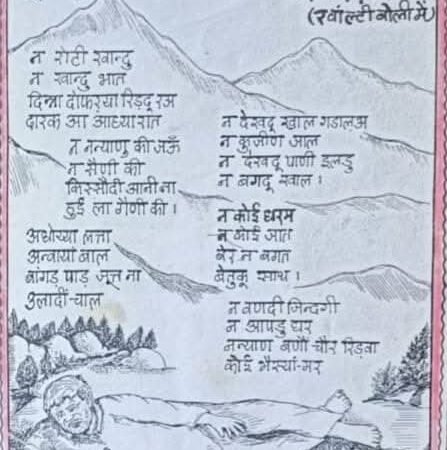 (रवांल्टी बोली में)
न रोटी खान्दु
न खान्दु भात
दिन्ना दोफरया रिड़दू रअ
दारक आ आध्यारात
न नन्याणु की जऊँ
न सैणी की
किस्सौदी आनी ना
हुई ला गैणी की ।
अधोच्या लत्ता
अन्वाया बाल
बांगड़ पाड़ जून ना
उलादीं-चाल
न देखदू खाल गडालअ
न कूजीण आल
न देखदू पाणी इलडु
न बगदू खाल ।
न कोई धरम
न कोई जात
बेर न बगत
बेतुकू साथ ।
न वणदी जिन्दगी
न आपडु घर
नन्याण बणौं चौर रिड़वा
कोई भैस्यां-मर